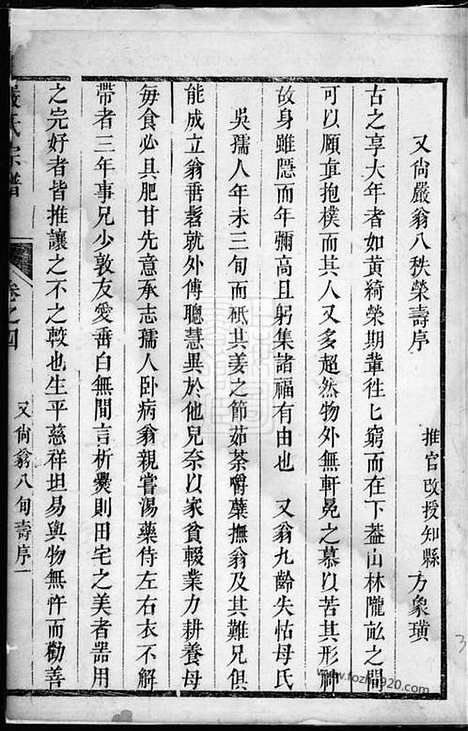 又尙嚴翁八秩榮壽序
推官改授知縣 方象璜
古之享大年者如黃綺榮期軰徃匕窮而在下葢山林隴畝之間
可以頤眞抱樸而其人又多超然物外無軒冕之慕以苦其形神
故身雖隱而年彌高且躬集諸福有由也 又翁九齡失怙母氏
吳孺人年未三旬而祇其姜之節茹荼嚼蘗撫翁及其難兄俱
能成立翁垂髫就外傅聰慧異於他兒奈以家貧輟業力耕養母
每食必具肥甘先意承志孺人卧病翁親嘗湯藥侍左右衣不解
帶者三年事兄少敦友愛垂白無間言析㸑則田宅之美者器用
之完好者皆推讓之不之較也生平慈祥坦易與物無忤而勸善
嚴氏宗譜
卷之四
又尙翁八旬壽序一
www.fozhu920.com